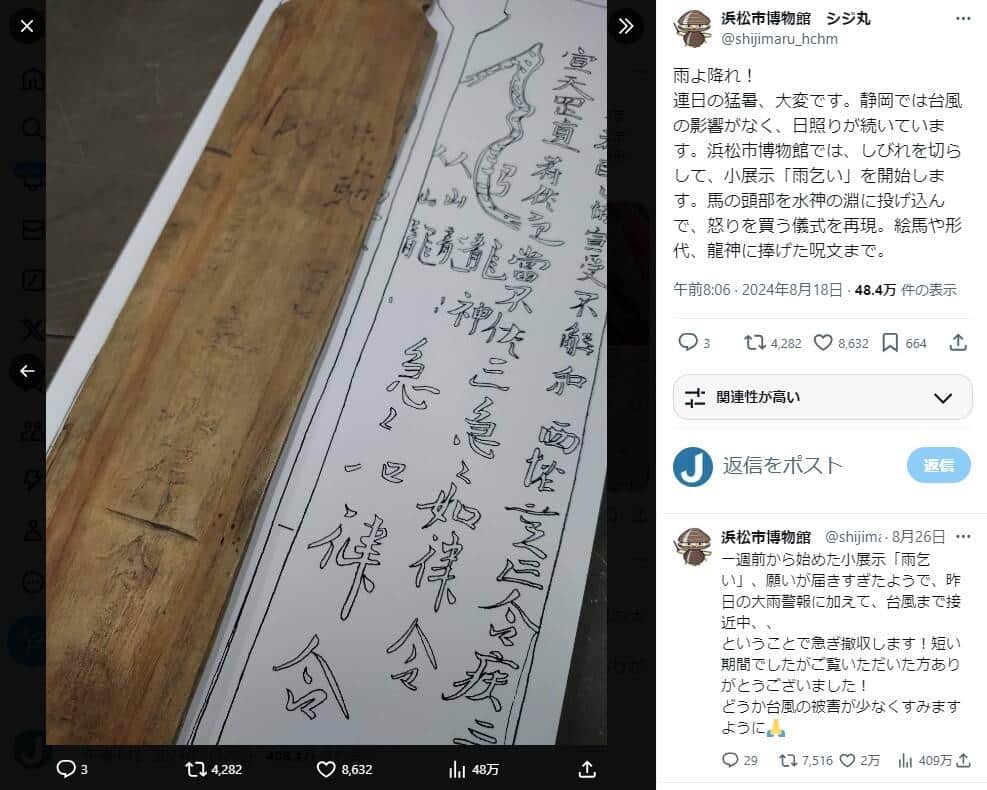 不解和西
急〻如律令
急〻
一口
律
令
3
4,282
8,632
48万
浜松市博物館 シジ丸
@shijimaru_hchm
雨よ降れ！
連日の猛暑、大変です。静岡では台風
の影響がなく、日照りが続いていま
す。浜松市博物館では、しびれを切ら
して、小展示「雨乞い」を開始しま
す。馬の頭部を水神の淵に投げ込ん
で、怒りを買う儀式を再現。絵馬や形
代、龍神に捧げた呪文まで。
午前8:06 · 2024年8月18日 · 48.4万 件の表示
3 4,282 8,632 664
関連性が高い
J 返信をポスト 返信
浜松市博物館 @shijima · 8月26日
一週前から始めた小展示「雨乞
い」、願いが届きすぎたようで、昨
日の大雨警報に加えて、台風まで接
近中、、
ということで急ぎ撤収します！短い
期間でしたがご覧いただいた方あり
がとうございました！
どうか台風の被害が少なくすみます
ように🙏
29 7,516 2万 409万